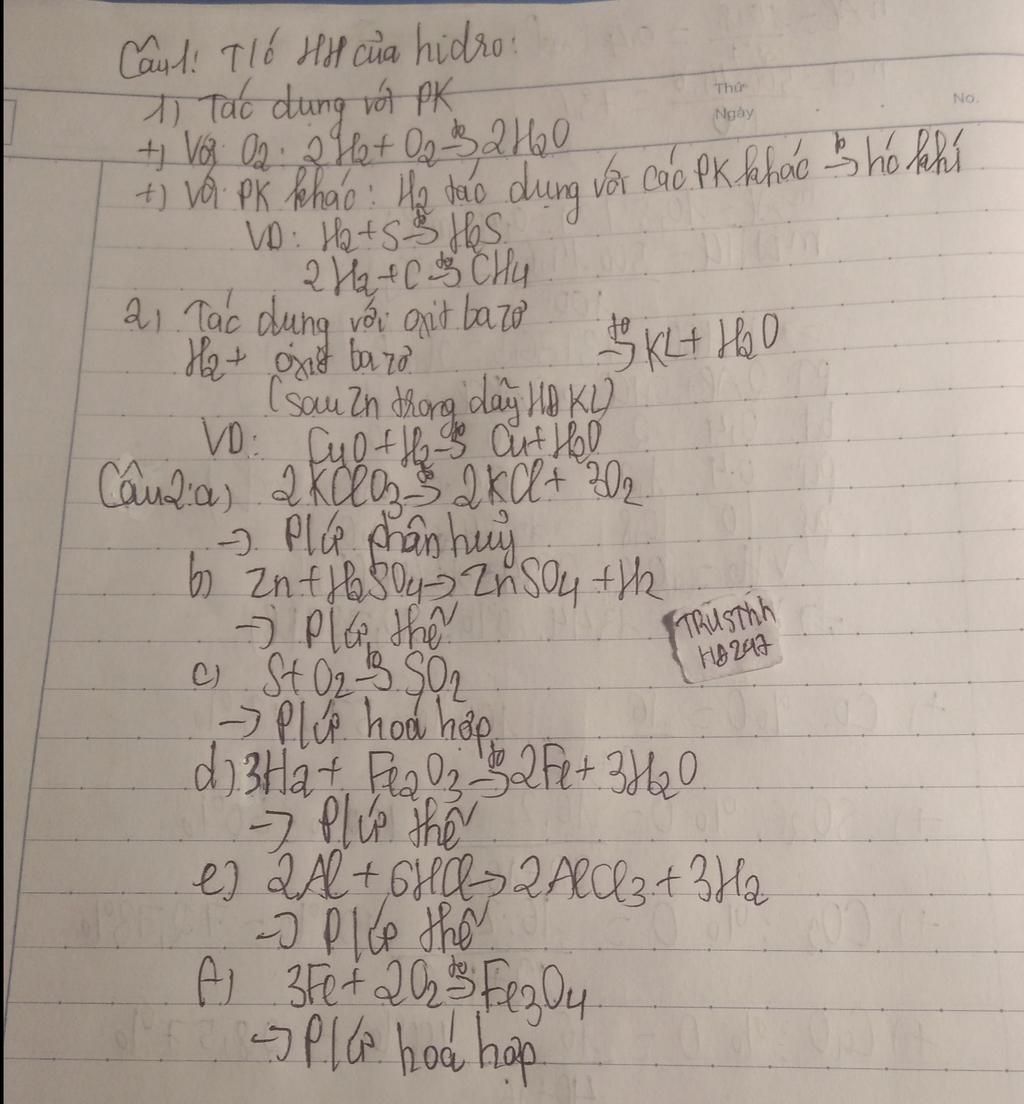 Câu1: T/c HH của hidro:
1) Tác dụng với PK
Thứ
Ngày
No.
+) Với O2: 2H2 + O2 -to-> 2H2O
+) Với PK khác: H2 tác dụng với các PK khác -to-> h/c khí
VD: H2 + S -to-> H2S
2H2 + C -to-> CH4
2) Tác dụng với oxit bazơ
H2 + oxit bazơ -to-> KL + H2O
(sau Zn trong dãy HĐ KL)
VD: CuO + H2 -to-> Cu + H2O
Câu2: a) 2KClO3 -to-> 2KCl + 3O2
-> P/ứ phân huỷ
b) Zn + H2SO4 -> ZnSO4 + H2
-> P/ứ thế
TRUSTNN
HĐ247
c) S + O2 -to-> SO2
-> P/ứ hoá hợp
d) 3H2 + Fe2O3 -to-> 2Fe + 3H2O
-> P/ứ thế
e) 2Al + 6HCl -> 2AlCl3 + 3H2
-> P/ứ thế
f) 3Fe + 2O2 -to-> Fe3O4
-> P/ứ hoá hợp